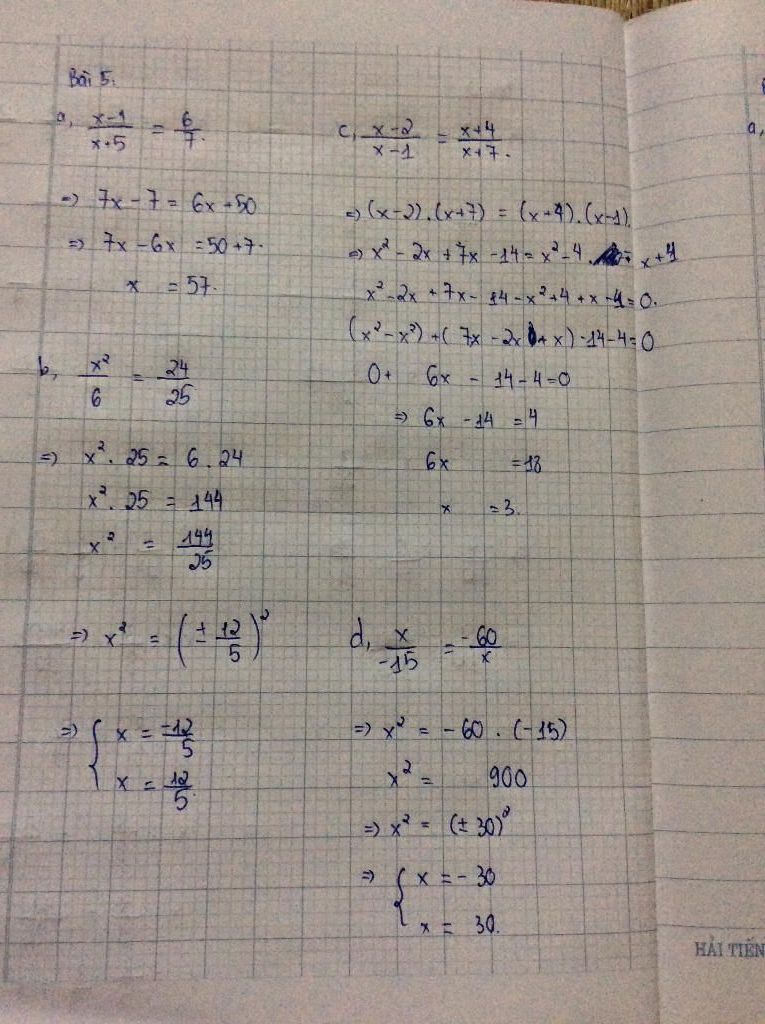 Bài 5:
a, \frac{x-1}{x+5} = \frac{6}{7}.
=> 7x - 7 = 6x + 50
=> 7x - 6x = 50 + 7.
x = 57.
b, \frac{x^2}{6} = \frac{24}{25}
=> x^2 . 25 = 6 . 24
x^2 . 25 = 144
x^2 = \frac{144}{25}
=> x^2 = (± \frac{12}{5})^2
=> { x = \frac{-12}{5}
x = \frac{12}{5}.
c, \frac{x-2}{x-1} = \frac{x+4}{x+7}.
=> (x-2).(x+7) = (x+4).(x-1).
=> x^2 - 2x + 7x - 14 = x^2 - 4. x + 4
x^2 - 2x + 7x - 14 - x^2 + 4 + x - 4 = 0.
(x^2 - x^2) + (7x - 2x + x) - 14 - 4 = 0
0 + 6x - 14 - 4 = 0
=> 6x - 14 = 4
6x = 18
x = 3.
d, \frac{x}{-15} = \frac{-60}{x}
=> x^2 = -60 . (-15)
x^2 = 900
=> x^2 = (± 30)^2
=> { x = -30
x = 30.
a,
HẢI TIẾN